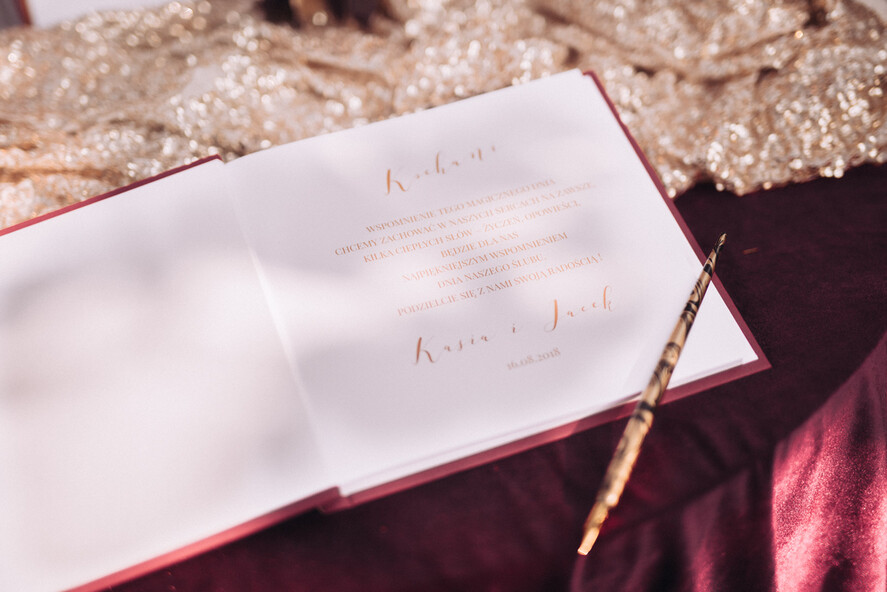 Kochani
WSPOMNIENIE TEGO MAGICZNEGO DNIA
CHCEMY ZACHOWAĆ W NASZYCH SERCACH NA ZAWSZE.
KILKA CIEPŁYCH SŁÓW – ŻYCZEŃ, OPOWIEŚCI,
BĘDZIE DLA NAS
NAJPIĘKNIEJSZYM WSPOMNIENIEM
DNIA NASZEGO ŚLUBU.
PODZIELCIE SIĘ Z NAMI SWOJĄ RADOŚCIĄ!
Kasia i Jacek
16.08.2018